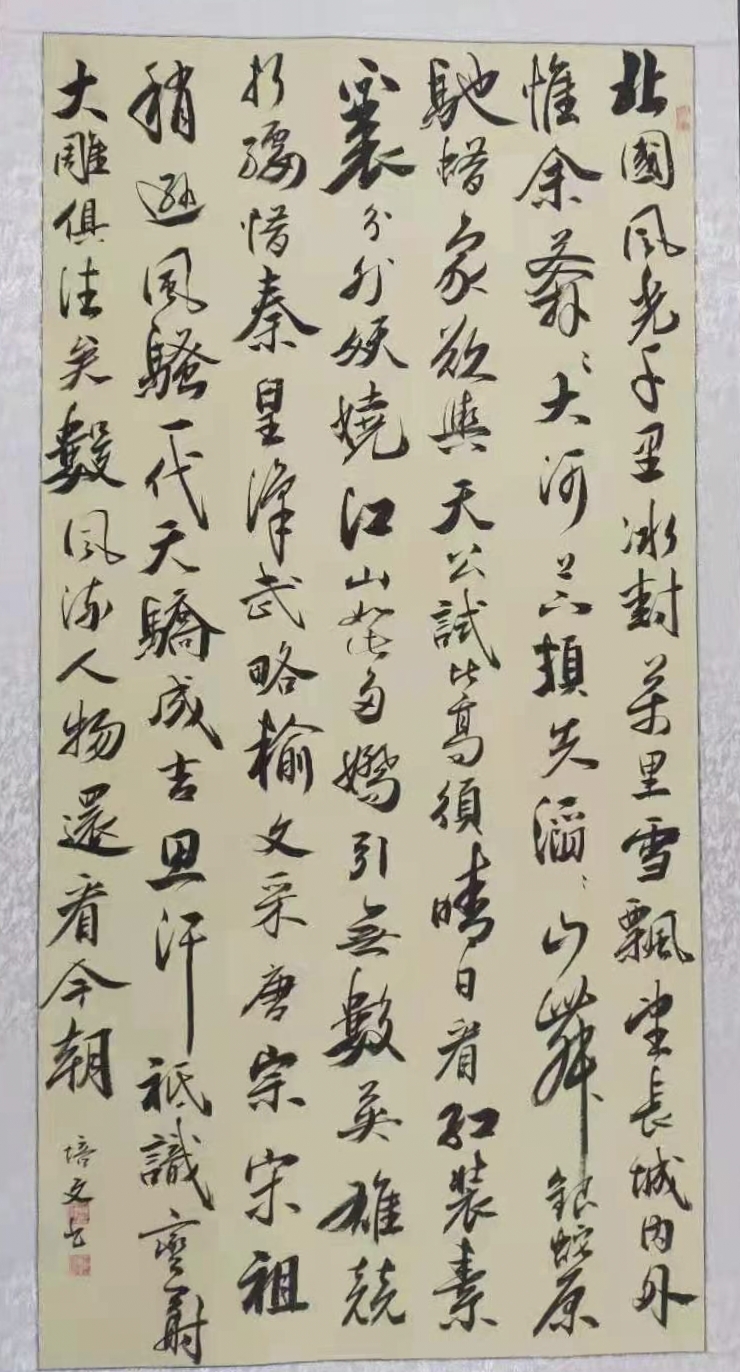 北國風光千里冰封萬里雪飄望長城内外
惟余莽〻大河上下頓失滔〻山舞銀蛇原
馳蜡象欲與天公試比高須晴日看紅裝素
裹分外妖嬈江山如此多嬌引無數英雄競
折腰惜秦皇漢武略輸文采唐宗宋祖
稍遜風騷一代天驕成吉思汗祗識彎弓射
大雕俱往矣數風流人物還看今朝
培文书